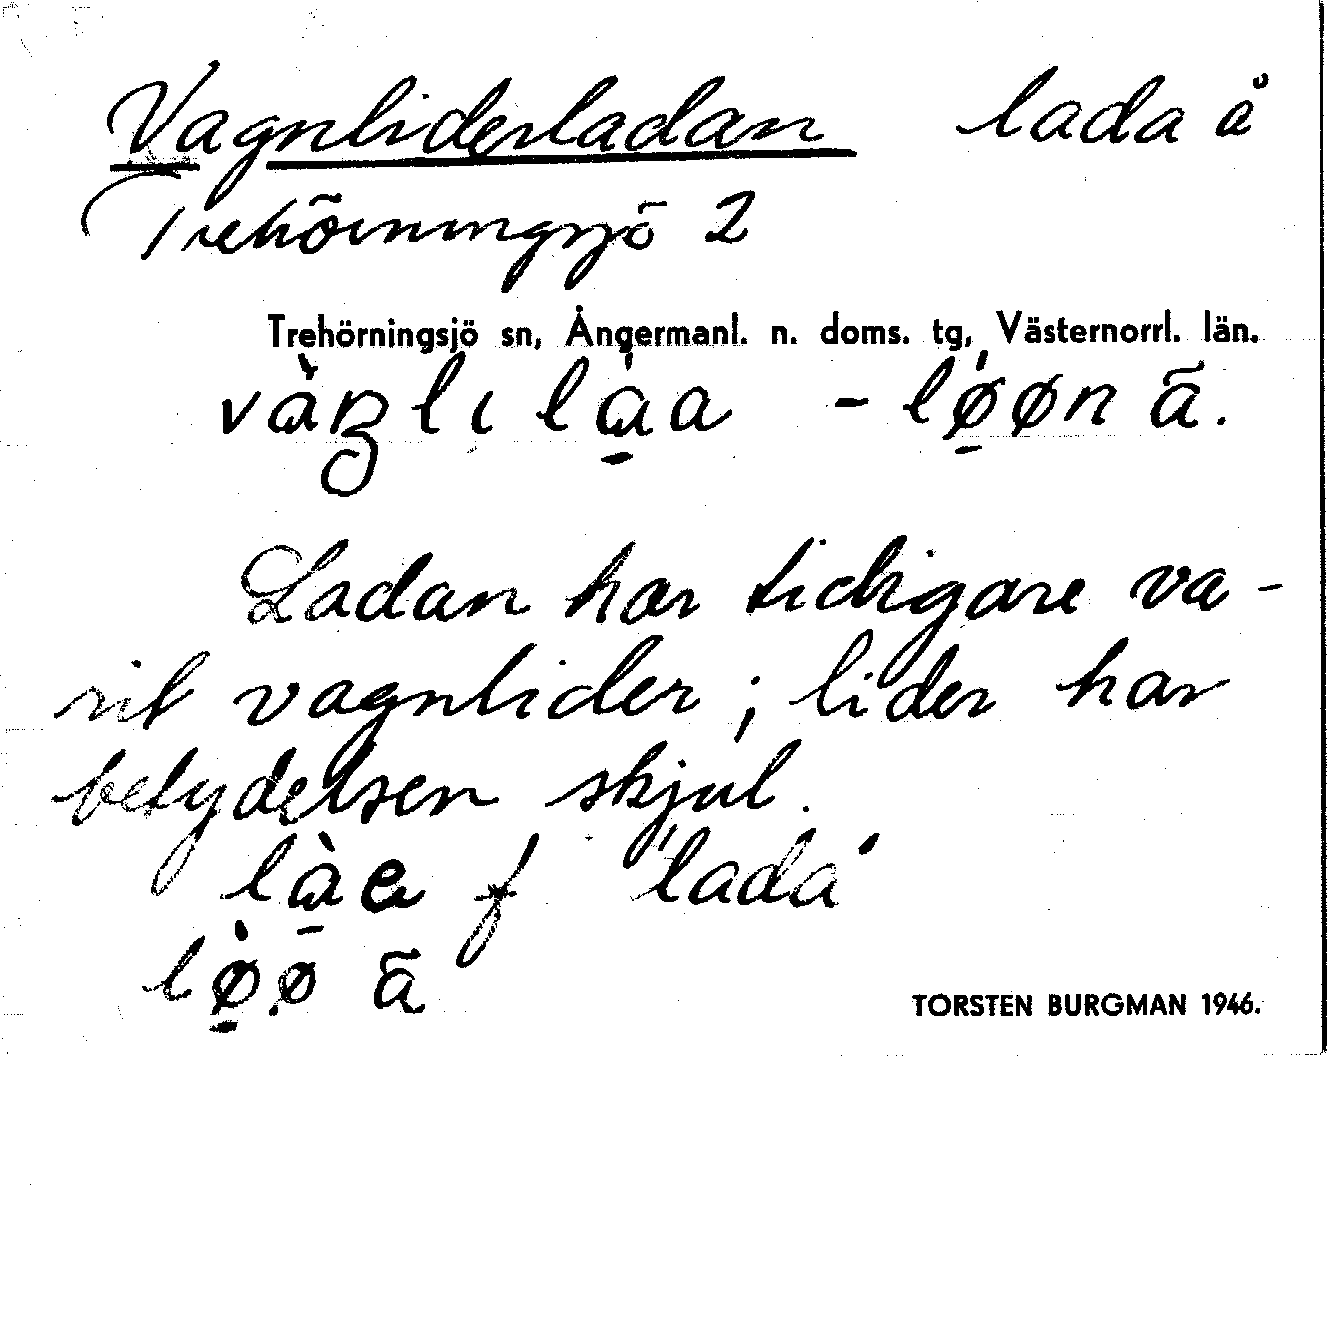 Vagnliderladan lada å
Trehörningsjö 2
Trehörningsjö sn, Ångermanl. n. doms. tg, Västernorrl. län.
Ladan har tidigare va-
rit vagnlider; lider har
betydelsen skjul.
f "lada"
TORSTEN BURGMAN 1946.